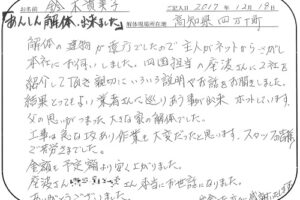 お名前 鈴木貴美子 ご記入日 2017年 12月18日
「あんしん解体、出来ました」 解体現場所在地 高知県四万十町
解体の建物が遠方でしたので主人がネットからさがして
本社にお伺いし、四国担当の座波さんに2社を
紹介して頂き親切にいろいろ説明やお話をお聞きしました。
結果とってもよい業者さんに巡りあう事が出来、ホッとしています。
父の思いがつまった大きな家の解体でした。
工事は急な攻めり作業も大変だったと思います。スタッフの皆様
ご苦労さまでした。
金額も予定額より安く上がりました。
座波さん さん本当にお世話になりました。
ありがとうございました。